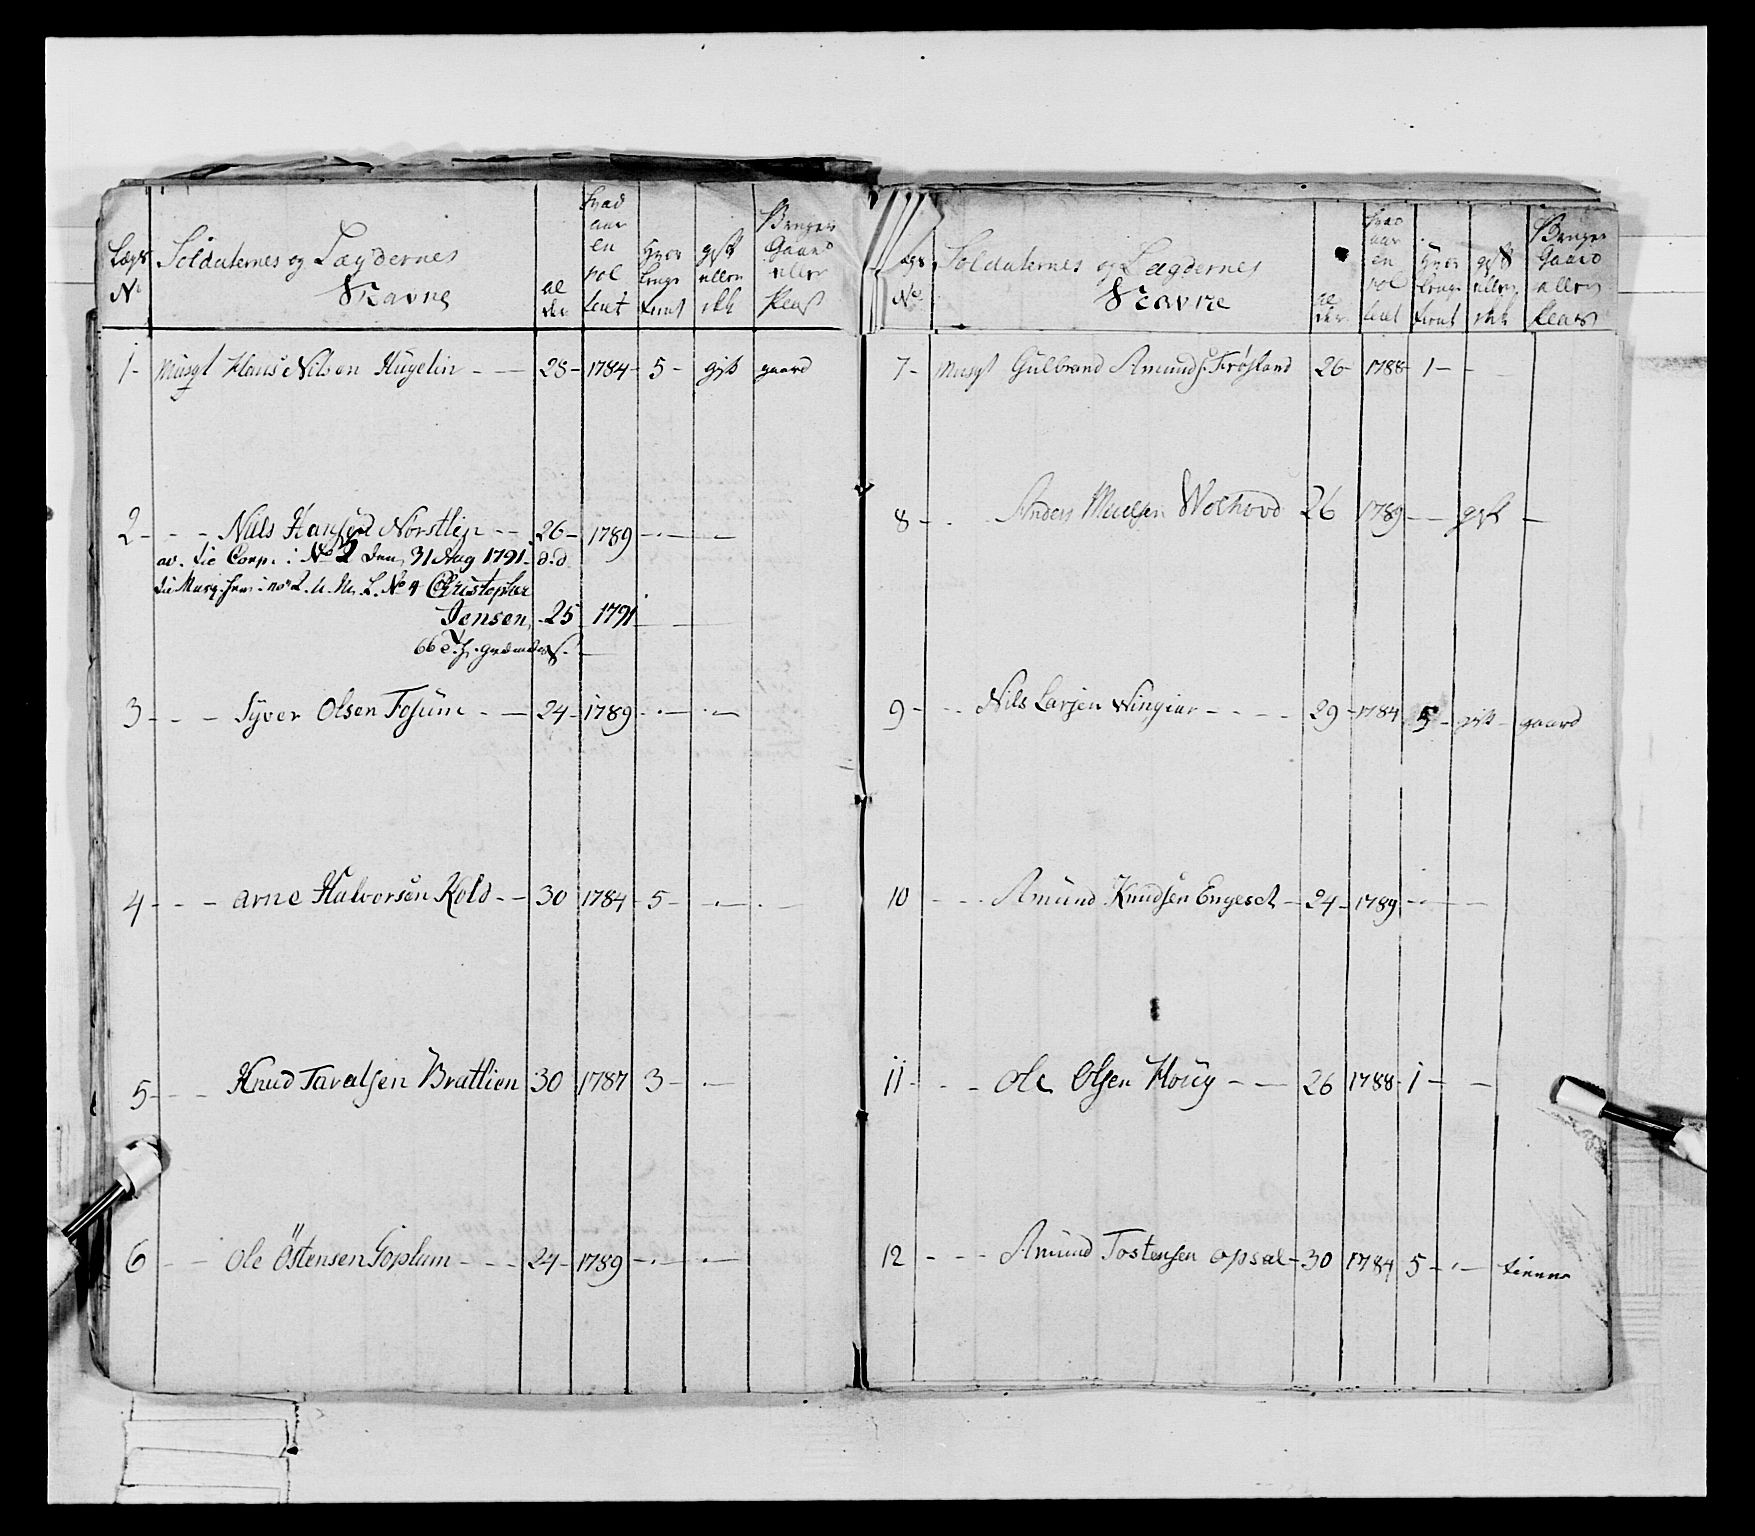 Lægs No Soldaternes og Lægdernes Navne alder hvad aar en rol lert hver længe tient gift eller ikk Bruger Gaard eller Plads
1- Musqt Hans Nilsen Hugelin - - 28- 1784- 5- gift gaard
2- - - Niils Hansen Norstlip - - 26- 1789 - -
av. Comp. No 2 Den 31 Aug 1791 d.d.
L. No 4 Christopher
Jensen, 25 1791
66
3- - - Syver Olsen Fosum - - 24- 1789 - -
4- - - arne Halvorsen Kold - - 30 1784- 5- - -
5- - - Knud Taralsen Bratlien 30 1787 3- -
6 - - Ole Östensen Goplum - - - 24- 1789 - -
No Soldaternes og Lægdernes Navne alder hvad aar en rol lert hver længe tient gift eller ikk Bruger Gaard eller Plads
7- Musqt Gulbrand Amunds. Frøsland 26- 1788- 1- - -
8- - Anders Wolhovd 26 1789 - gift -
9- - - Nils Larsen Wingiar - - - - 29- 1784 5- gift- gaard
10 - - - Amund Knudsen Engeset - 24- 1789 - -
11- - - Ole Olsen Houg - - 26 1788- 1- -
12 - - - Amund Tostensen opsal- 30 1784 5- -